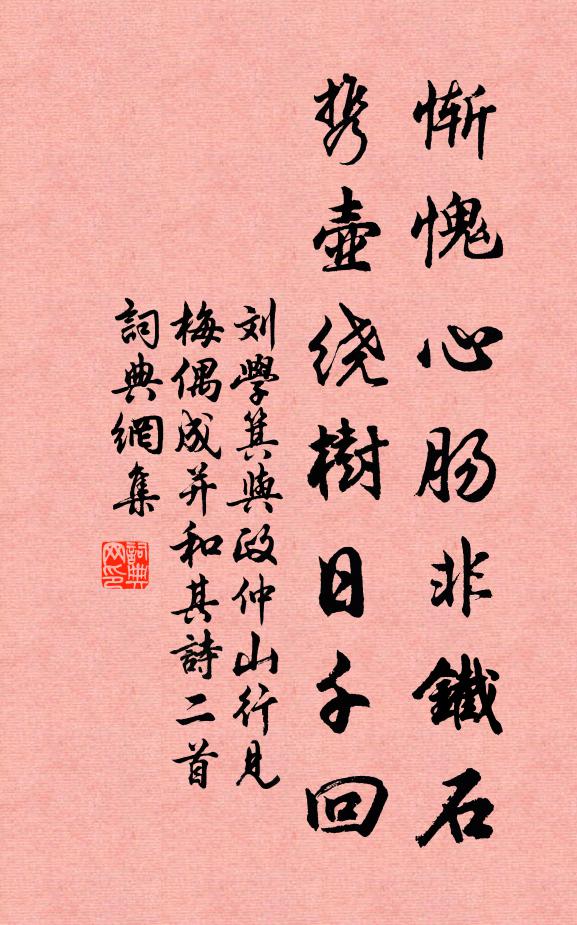 惭愧心肠非鐵石
携壺绕樹日千回
刘學箕與政仲山行見
梅偶成并和其詩二首
詞典網集
詞典
网印